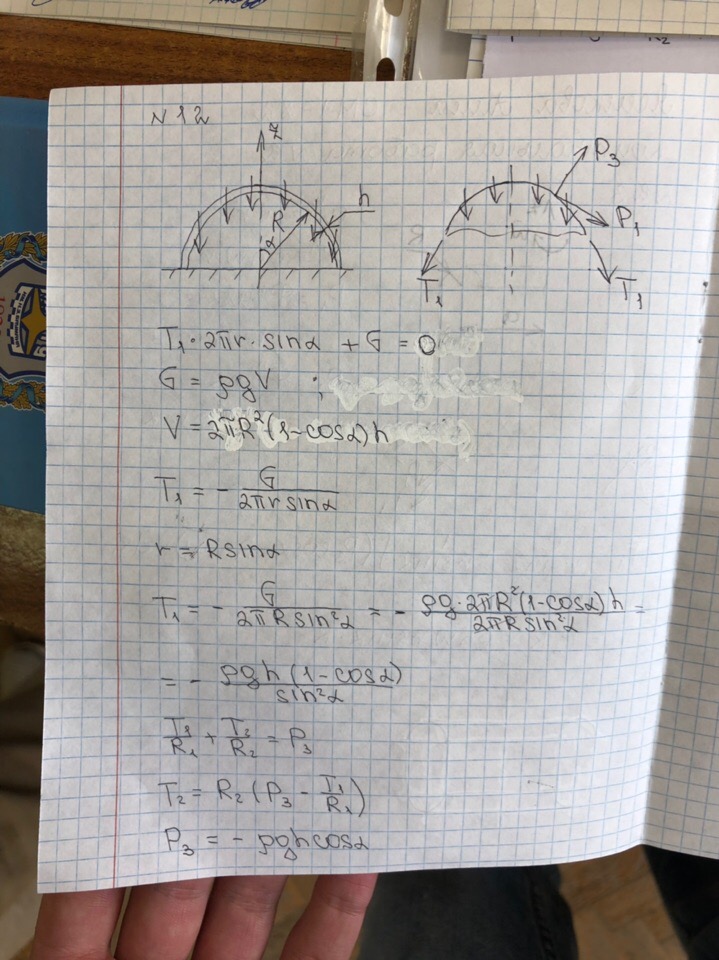 N12
z
R
α
h
P₃
P₁
T₁
T₁
T₁·2πr·sinα + G = 0
G = ρgV ;
V = 2πR²(1-cosα)h
T₁ = - G/(2πr sinα)
r = R sinα
T₁ = - G/(2πR sin²α) = - ρg·2πR²(1-cosα)h/(2πR sin²α) =
= - ρgh(1-cosα)/sin²α
T₁/R₁ + T₂/R₂ = P₃
T₂ = R₂(P₃ - T₁/R₁)
P₃ = - ρgh cosα